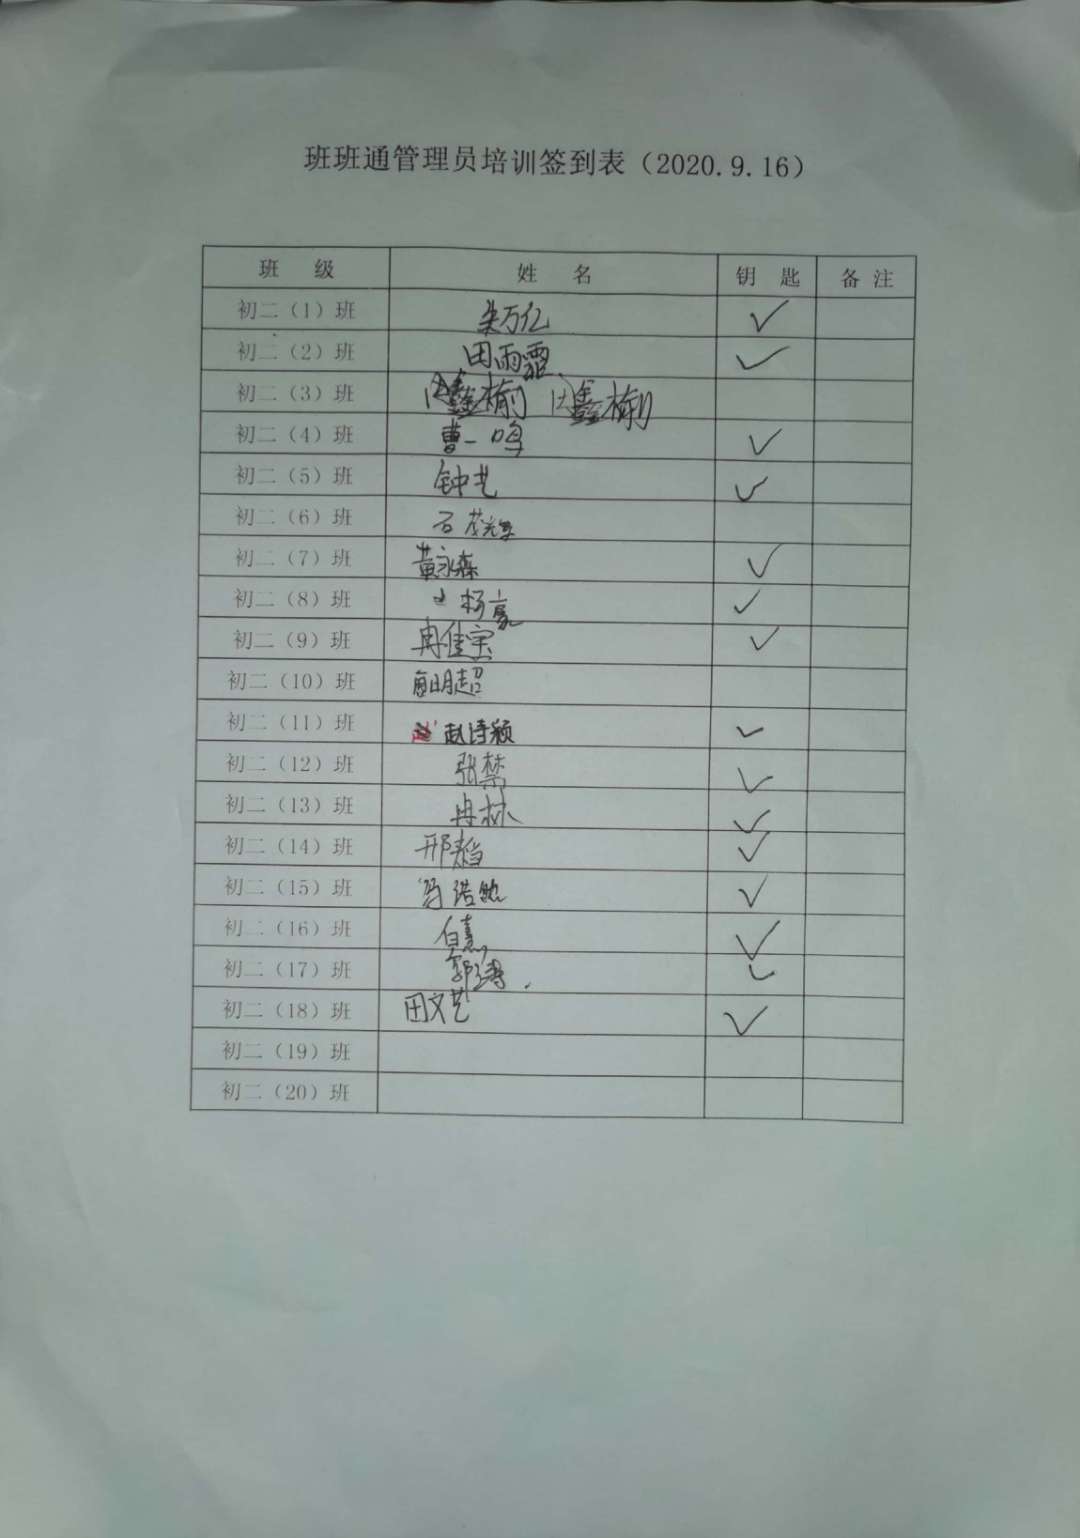 班班通管理员培训签到表（2020.9.16）
班 级 姓 名 钥 匙 备 注
初二（1）班 朱万亿 ✓
初二（2）班 田雨霏 ✓
初二（3）班 鑫榆 鑫榆
初二（4）班 曹一鸣 ✓
初二（5）班 钟艺 ✓
初二（6）班 石茂
初二（7）班 黄永森 ✓
初二（8）班 杨豪 ✓
初二（9）班 冉佳宝 ✓
初二（10）班 明超
初二（11）班 赵诗颖 ✓
初二（12）班 张禁 ✓
初二（13）班 冉林 ✓
初二（14）班 邢韬 ✓
初二（15）班 冯诺 ✓
初二（16）班 白熹 ✓
初二（17）班 郭 ✓
初二（18）班 田文艺 ✓
初二（19）班
初二（20）班